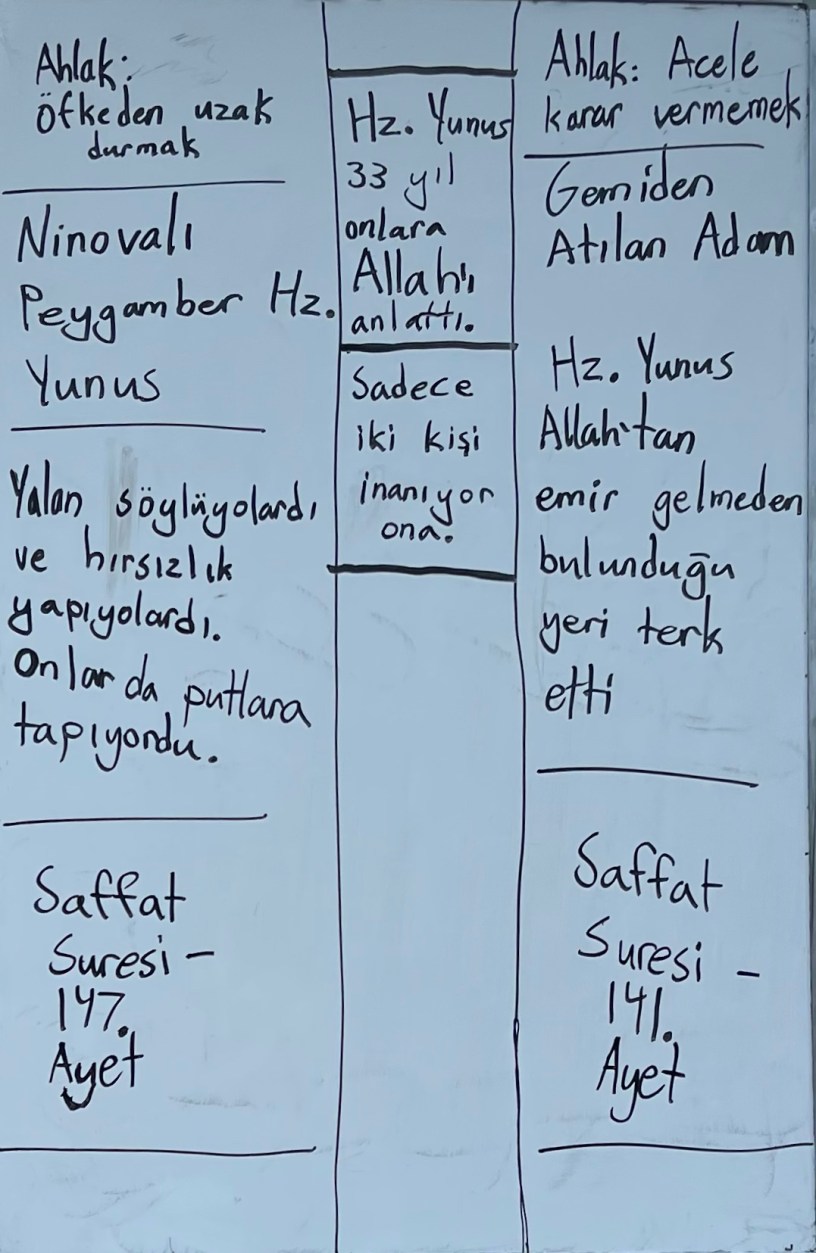 Ahlak:
öfkeden uzak
durmak
Ninovalı
Peygamber Hz.
Yunus
Yalan söylüyolardı
ve hırsızlık
yapıyolardı.
Onlar da putlara
tapıyordu.
Saffat
Suresi -
147.
Ayet
Hz. Yunus
33 yıl
onlara
Allah'ı
anlattı.
Sadece
iki kişi
inanıyor
ona.
Ahlak: Acele
karar vermemek
Gemiden
Atılan Adam
Hz. Yunus
Allah'tan
emir gelmeden
bulunduğu
yeri terk
etti
Saffat
Suresi -
141.
Ayet